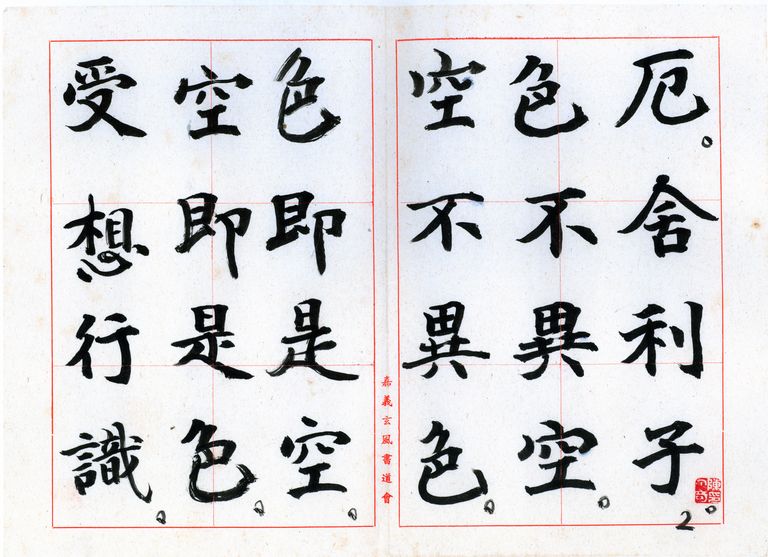 厄。舍利子。
色不異空。
空不異色。
色即是空。
空即是色。
受想行識。
嘉義玄風書道會
2